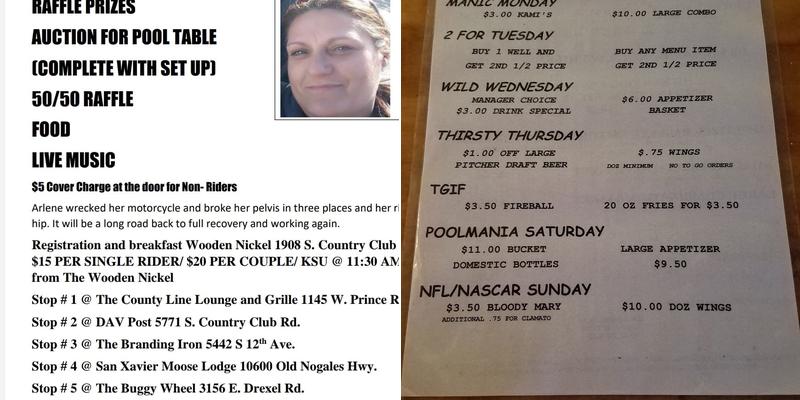 RAFFLE PRIZES
AUCTION FOR POOL TABLE
(COMPLETE WITH SET UP)
50/50 RAFFLE
FOOD
LIVE MUSIC
$5 Cover Charge at the door for Non- Riders
Arlene wrecked her motorcycle and broke her pelvis in three places and her
hip. It will be a long road back to full recovery and working again.
Registration and breakfast Wooden Nickel 1908 S. Country Club
$15 PER SINGLE RIDER/ $20 PER COUPLE/ KSU @ 11:30 AM
from The Wooden Nickel
Stop # 1 @ The County Line Lounge and Grille 1145 W. Prince
Stop # 2 @ DAV Post 5771 S. Country Club Rd.
Stop # 3 @ The Branding Iron 5442 S 12th Ave.
Stop # 4 @ San Xavier Moose Lodge 10600 Old Nogales Hwy.
Stop # 5 @ The Buggy Wheel 3156 E. Drexel Rd.
MANIC MONDAY
$3.00 KAMI'S $10.00 LARGE COMBO
2 FOR TUESDAY
BUY 1 WELL AND BUY ANY MENU ITEM
GET 2ND 1/2 PRICE GET 2ND 1/2 PRICE
WILD WEDNESDAY
MANAGER CHOICE $6.00 APPETIZER
$3.00 DRINK SPECIAL BASKET
THIRSTY THURSDAY
$1.00 OFF LARGE $.75 WINGS
PITCHER DRAFT BEER DOZ MINIMUM NO TO GO ORDERS
TGIF
$3.50 FIREBALL 20 OZ FRIES FOR $3.50
POOLMANIA SATURDAY
$11.00 BUCKET LARGE APPETIZER
DOMESTIC BOTTLES $9.50
NFL/NASCAR SUNDAY
$3.50 BLOODY MARY $10.00 DOZ WINGS
ADDITIONAL .75 FOR CLAMATO